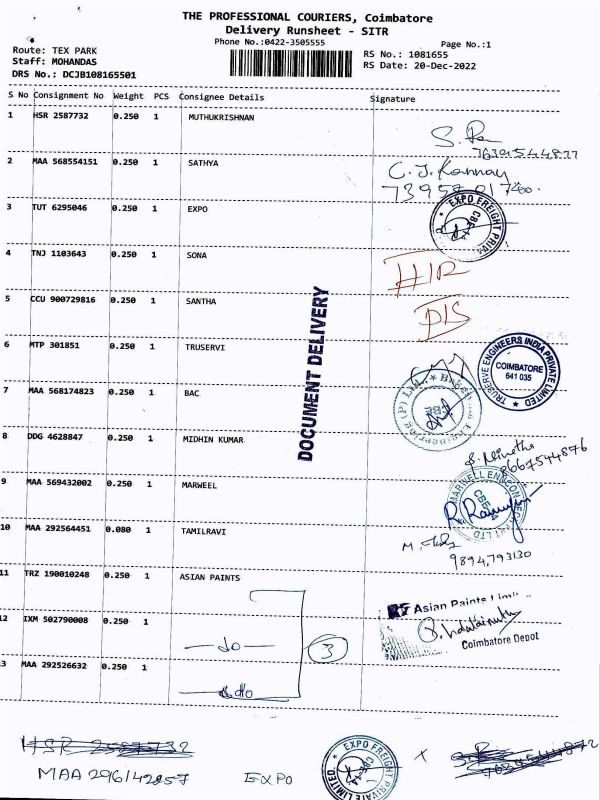 THE PROFESSIONAL COURIERS, Coimbatore
Delivery Runsheet - SITR
Phone No.:0422-3505555
Page No.:1
Route: TEX PARK
Staff: MOHANDAS
DRS No.: DCJB108165501
RS No.: 1081655
RS Date: 20-Dec-2022
S No Consignment No Weight PCS Consignee Details Signature
1 HSR 2587732 0.250 1 MUTHUKRISHNAN
7639544877
2 MAA 568554151 0.250 1 SATHYA
C. J. Kannan
3 TUT 6295046 0.250 1 EXPO
EXPO FREIGHT PRIVA
CBE
4 TNJ 1103643 0.250 1 SONA
5 CCU 900729816 0.250 1 SANTHA
DIS
6 MTP 301851 0.250 1 TRUSERVI
TRUSERVE ENGINEERS INDIA PRIVATE LIMITED
COIMBATORE
641 035
7 MAA 568174823 0.250 1 BAC
DOCUMENT DELIVERY
8 DDG 4628847 0.250 1 MIDHIN KUMAR
8667544876
9 MAA 569432002 0.250 1 MARWEEL
10 MAA 292564451 0.080 1 TAMILRAVI
9894,793130
11 TRZ 190010248 0.250 1 ASIAN PAINTS
Asian Paints Limi
Coimbatore Depot
12 IXM 502790008 0.250 1 do 3
3 MAA 292526632 0.250 1 do
HSR 2587732
MAA 296142857 EXPO
EXPO FREIGHT PRIVATE LIMITED
X